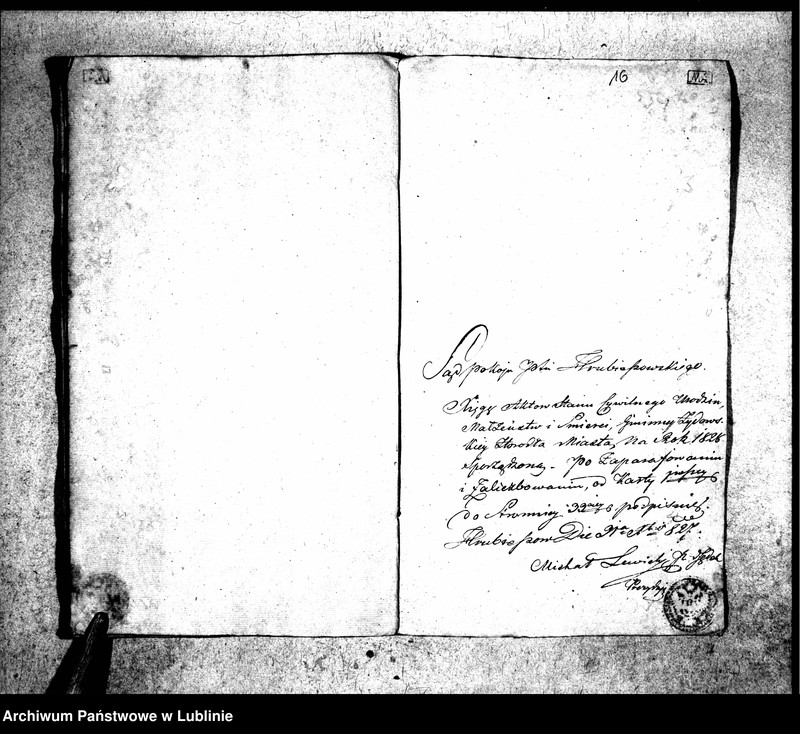 16
Sąd pokoju Pttu Hrubieszowskiego.
Xięgę Aktow Stanu Cywilnego Urodzin,
Małżeństw i Smierci, Gminney Żydows-
kiey Horodła Miasta, Na Rok 1828
sporządzoną - Po Zaparafowaniu
i Zaliczbowaniu, od Karty
do Stronnicy podpisuję.
Hrubieszow Die 827.
Michał Lewicki
Archiwum Państwowe w Lublinie